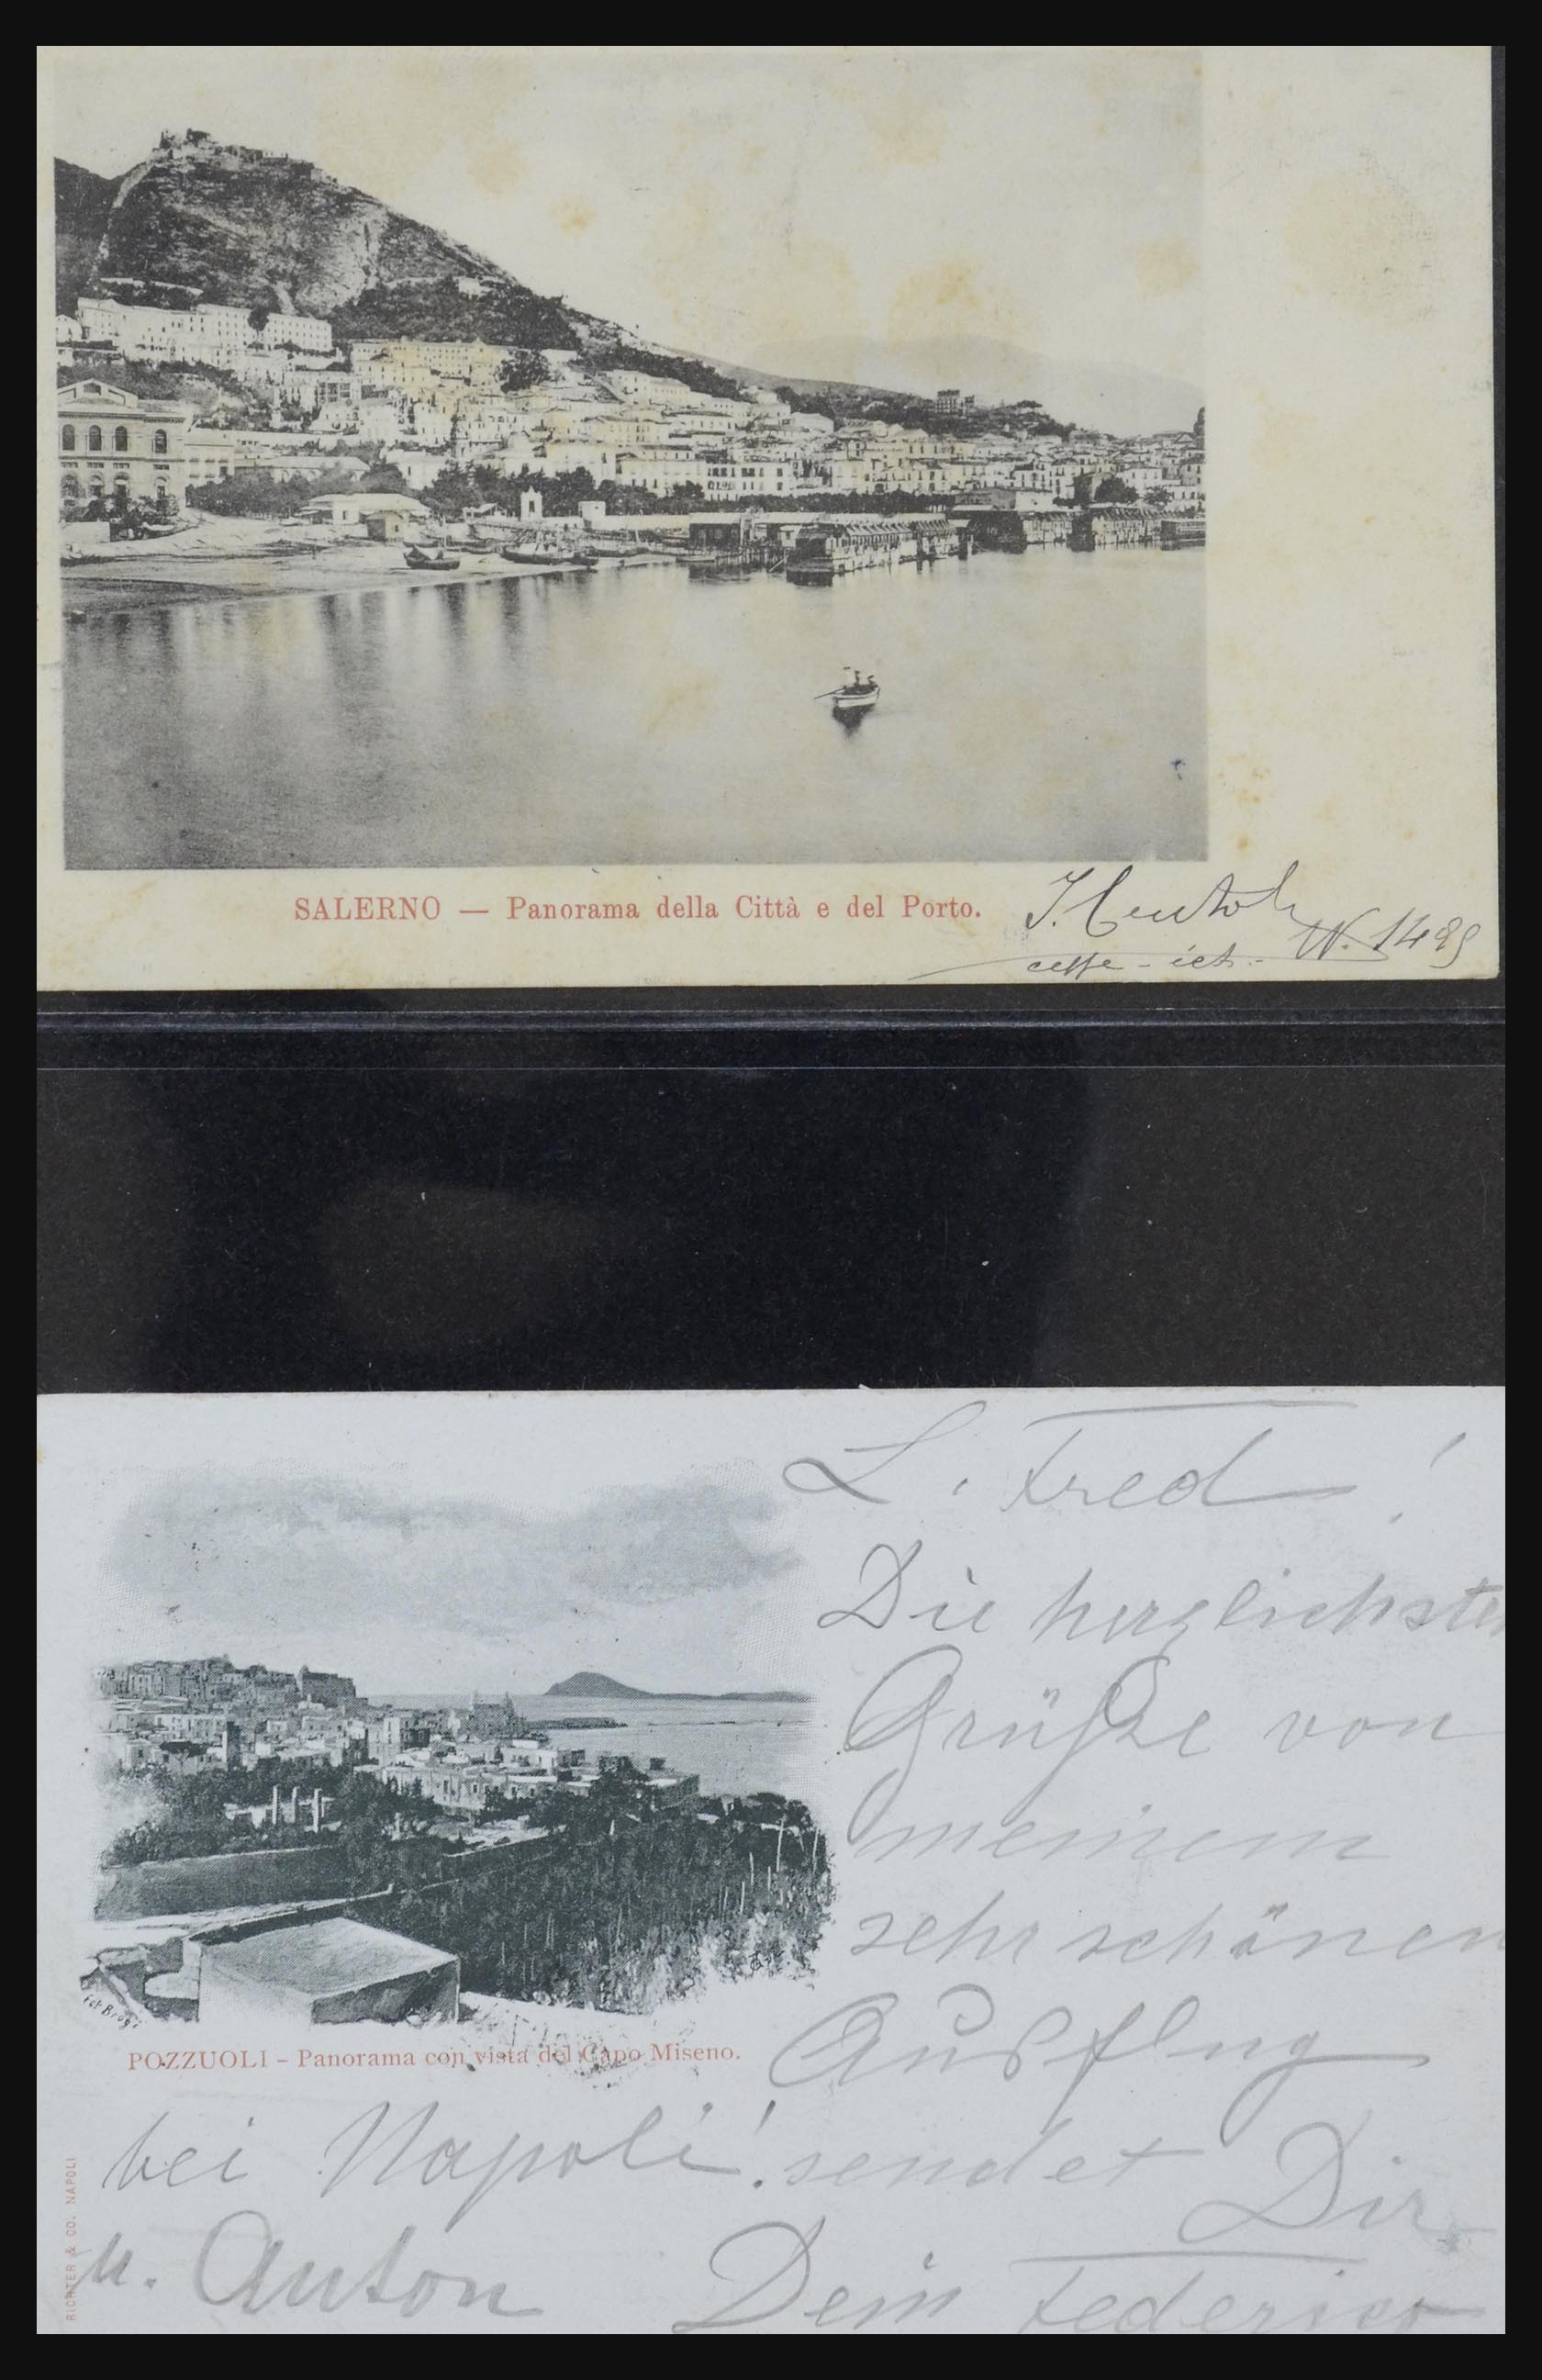 SALERNO — Panorama della Città e del Porto.
N. 1485
L. Fred!
Die herzlichsten
Grüße von
meinem
sehr schönen
Ausflug
fot Brogi
POZZUOLI - Panorama con vista del Capo Miseno.
bei Napoli! sendet Dir
u. Anton Dein Federico
RICHTER & CO. NAPOLI